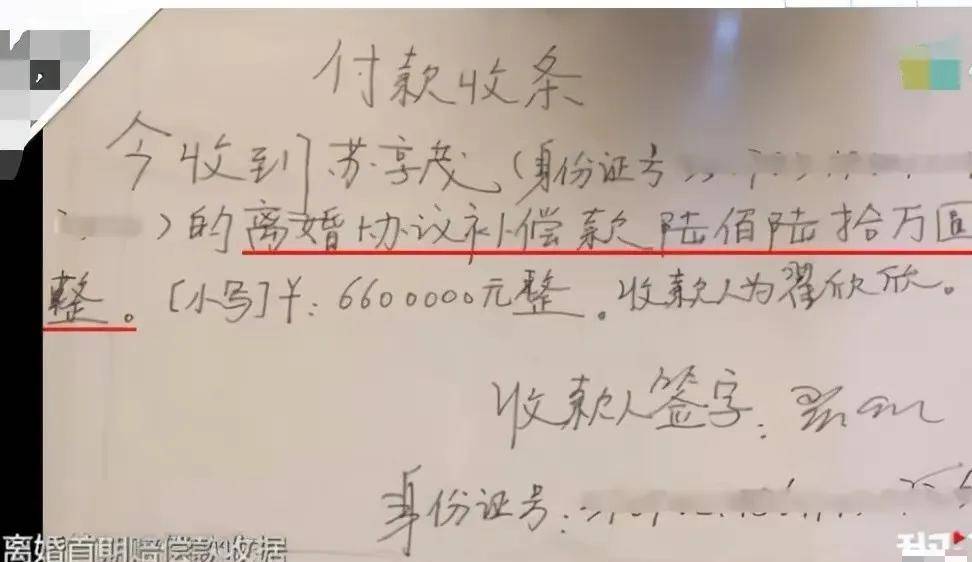 付款收条
今收到苏享茂(身份证号
)的离婚协议补偿款陆佰陆拾万圆
整。[小写]¥:6600000元整。收款人为翟欣欣。
收款人签字:
身份证号:
离婚首期赔偿款收据